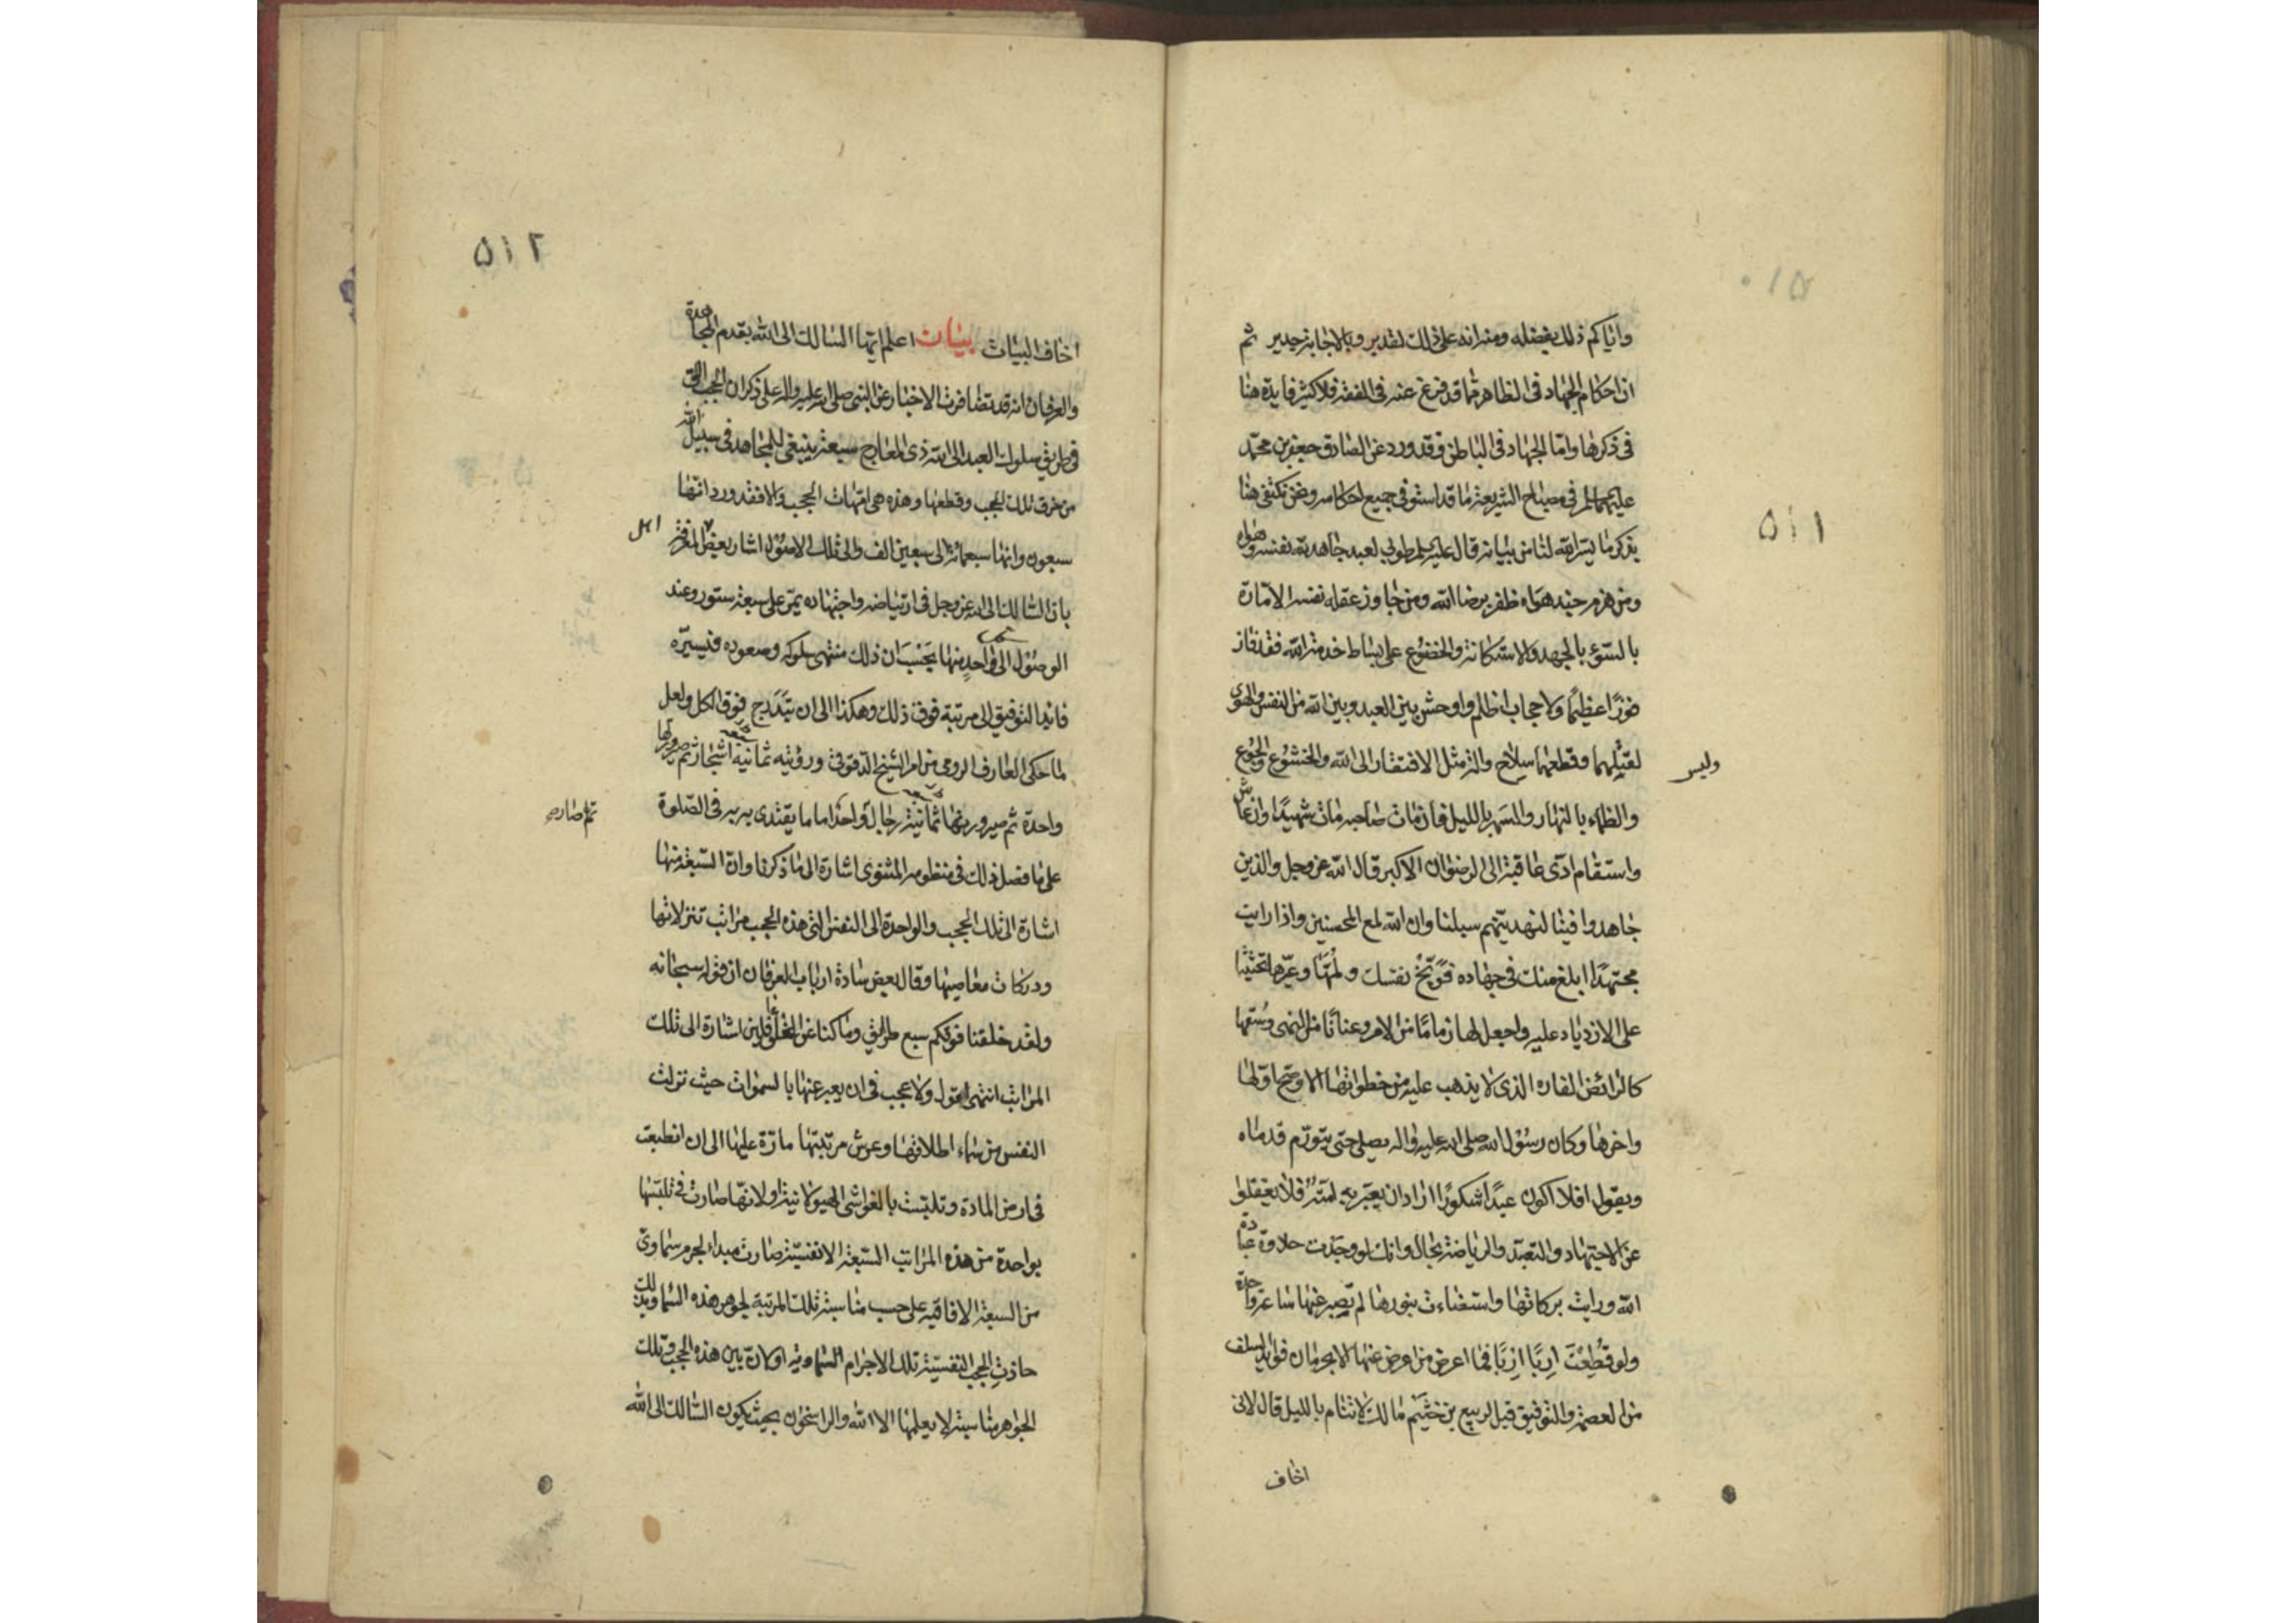 ٥١٠
٥١١
واياكم ذلك بفضله ومنه انه على ذلك لقدير وبالاجابة جدير ثم
ان احكام الجهاد فى الظاهر مما قد فرغ عنه فى الفقه فلا كثير فايدة هنا
فى ذكرها واما الجهاد فى الباطن فقد ورد عن الصادق جعفر بن محمد
عليهما السلم فى مصباح الشريعة ما قد استوفى جميع احكامه ونحن نكتفى هنا
بذكر ما يسر الله لنا من بيانه قال عليه السلم طوبى لعبد جاهد لله نفسه وهواه
ومن هزم جند هواه ظفر برضا الله ومن جاوز عقله نفسه الامارة
بالسوء بالجهد والاستكانة والخضوع على بساط خدمة الله فقد فاز
فوزا عظيما ولا حجاب اظلم واوحش بين العبد وبين الله من النفس والهوى
وليس
لقتلهما وقطعهما سلاح والة مثل الافتقار الى الله والخشوع والجوع
والظماء بالنهار والسهر بالليل فان مات صاحبه مات شهيدا وان عاش
واستقام ادى عاقبته الى الرضوان الاكبر قال الله عز وجل والذين
جاهدوا فينا لنهدينهم سبلنا وان الله لمع المحسنين واذا رايت
مجتهدا ابلغ منك فى جهاده فوبخ نفسك ولمها وعيرها تحثيثا
على الازدياد عليه واجعل لها زماما من الامر وعنانا من النهى وسقها
كالرائض الفاره الذى لا يذهب عليه من خطواتها الا وصح اولها
واخرها وكان رسول الله صلى الله عليه واله يصلى حتى يتورم قدماه
ويقول افلا اكون عبدا شكورا اراد ان يعتبر به امته فلا يغفلوا
عن الاجتهاد والتعبد والرياضة بحال وانك لو وجدت حلاوة عبادة
الله ورايت بركاتها واستضاءت بنورها لم تصبر عنها ساعة واحدة
ولو قطعت اربا اربا فما اعرض من اعرض عنها الا بحرمان فوايد السلف
من العصمة والتوفيق قيل لربيع بن خثيم مالك لا تنام بالليل قال لانى
اخاف
٥١٢
اخاف البيات بيان اعلم ايها السالك الى الله بقدم المجاهدة
والعرفان انه قد تضافرت الاخبار عن النبى صلى الله عليه واله على ذكر ان الحجب التى
فى طريق سلوك العبد الى الله ذى المعارج سبعة ينبغى للمجاهد فى سبيل الله
من خرق تلك الحجب وقطعها وهذه هى امهات الحجب والا فقد ورد انها
سبعون وانها سبعمائة الى سبعين الف والى تلك الاصول اشار بعض المعرفة
اهل
بان السالك الى الله عز وجل فى ارتياضه واجتهاده يمر على سبعة ستور وعند
الوصول الى واحد منها يحسب ان ذلك منتهى سلوكه وصعوده فيسيره
قائد التوفيق الى مرتبة فوق ذلك وهكذا الى ان يتدرج فوق الكل ولعل
لما حكى العارف الرومى من امر الشيخ الدقوقى ورؤيته ثمانية اشجار ثم صيرورتها
واحدة ثم صيرورتها ثمانية رجال واحد اماما يقتدى به فى الصلوة
ثم صار
على ما فصل ذلك فى منظومه المثنوى اشارة الى ما ذكرنا وان السبعة منها
اشارة الى تلك الحجب والواحدة الى النفس التى هذه الحجب مراتب تنزلاتها
ودركات معاصيها وقال بعض سادة ارباب العرفان ان قوله سبحانه
ولقد خلقنا فوقكم سبع طرائق وما كنا عن الخلق غافلين اشارة الى تلك
المراتب انتهى اقول ولا عجب فى ان يعبر عنها بالسموات حيث نزلت
النفس من سماء اطلاقها وعرش مرتبتها مارة عليها الى ان انطبعت
فى ارض المادة وتلبست بالغواشى الهيولانية او لانها صارت فى تلبسها
بواحدة من هذه المراتب السبعة الانفسية صارت مبداء لجرم سماوى
من السبعة الافاقية على حسب مناسبة تلك المرتبة لجوهر هذه السماء وبذلك
حاذت الحجب النفسية تلك الاجرام السماوية او كان بين هذه الحجب وتلك
الجواهر مناسبة لا يعلمها الا الله والراسخون بحيث يكون السالك الى الله